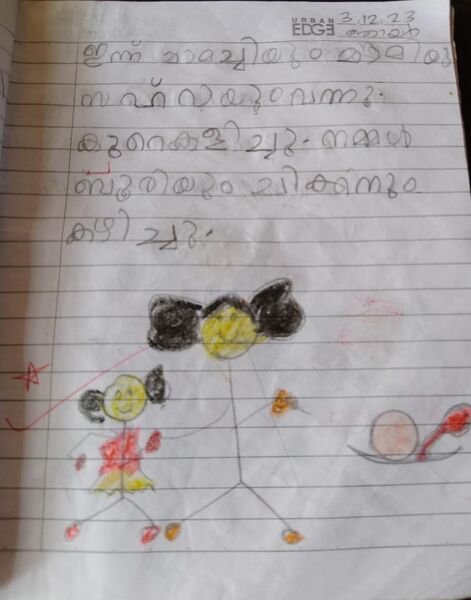 URBAN EDGE 3.12.23
ഞായർ
ഇന്ന് മാമച്ചിയും മാമിയും
സഫ്‌വയും വന്നു.
കുറെ കളിച്ചു. നമ്മൾ
ബൂരിയും ചിക്കനും
കഴിച്ചു.